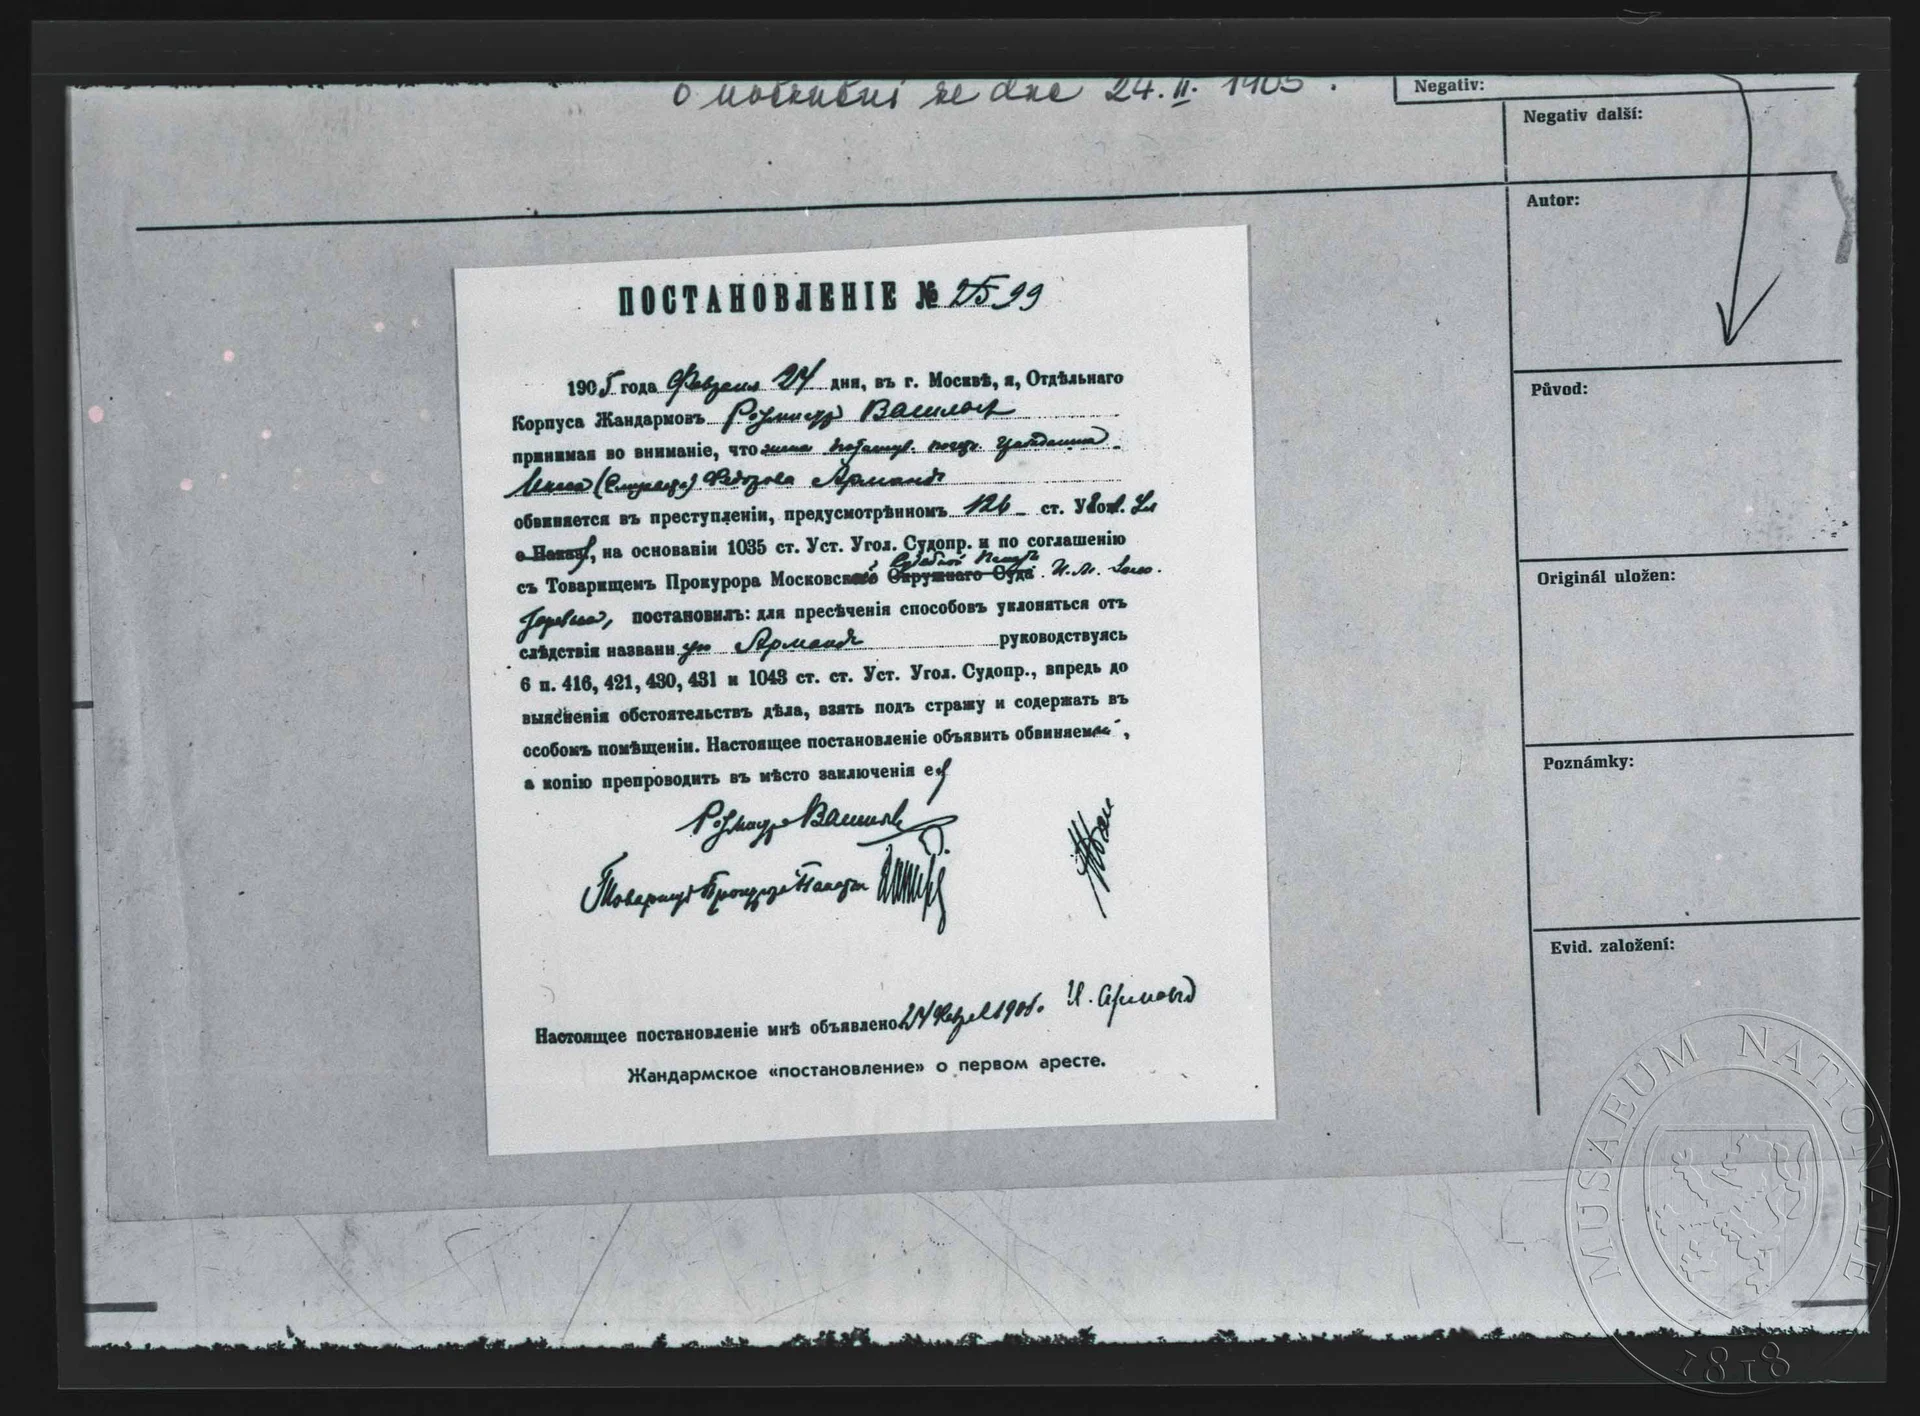 o ze dne 24. II. 1905.
Negativ:
Negativ další:
Autor:
Původ:
Originál uložen:
Poznámky:
Evid. založení:
ПОСТАНОВЛЕНІЕ № 2599
1905 года Февраля 24 дня, въ г. Москвѣ, я, Отдѣльнаго
Корпуса Жандармовъ Ротмистръ Васильевъ
принимая во вниманіе, что жена потомств. почетн. гражданина
Инеса Федорова Армандъ
обвиняется въ преступленіи, предусмотрѣнномъ 126 ст. Угол. Ул
о Наказ, на основаніи 1035 ст. Уст. Угол. Судопр. и по соглашенію
Судебной Палаты
съ Товарищемъ Прокурора Московской Окружнаго Суда
постановилъ: для пресѣченія способовъ уклоняться отъ
слѣдствія названную Армандъ руководствуясь
6 п. 416, 421, 430, 431 и 1043 ст. ст. Уст. Угол. Судопр., впредь до
выясненія обстоятельствъ дѣла, взять подъ стражу и содержать въ
особомъ помѣщеніи. Настоящее постановленіе объявить обвиняемой,
а копію препроводить въ мѣсто заключенія ея
Ротмистръ Васильевъ
Товарищъ Прокурора Палаты
Настоящее постановленіе мнѣ объявлено 24 Февраля 1905 г. И. Армандъ
Жандармское «постановление» о первом аресте.
MUSAEUM NATIONALE
1818